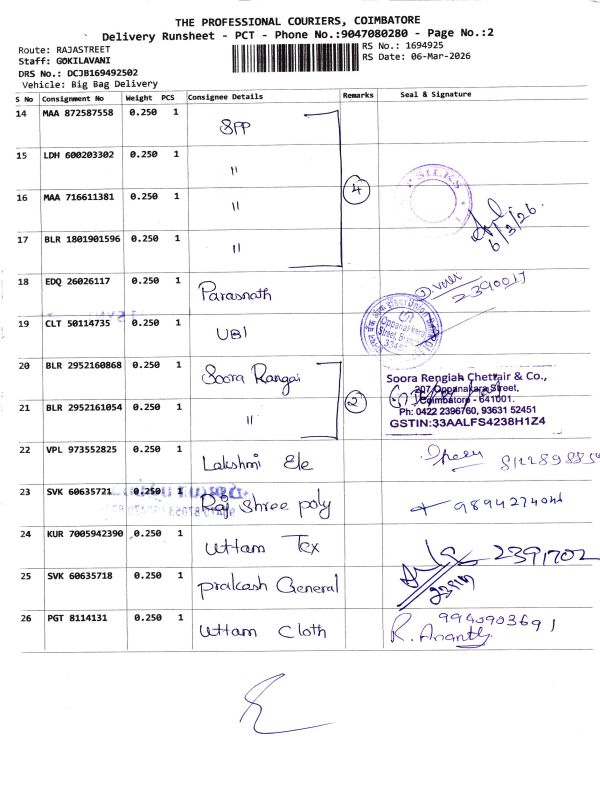 THE PROFESSIONAL COURIERS, COIMBATORE
Delivery Runsheet - PCT - Phone No.:9047080280 - Page No.:2
Route: RAJASTREET
Staff: GOKILAVANI
DRS No.: DCJB169492502
Vehicle: Big Bag Delivery
RS No.: 1694925
RS Date: 06-Mar-2026
S No Consignment No Weight PCS Consignee Details Remarks Seal & Signature
14 MAA 872587558 0.250 1 SPP
15 LDH 600203302 0.250 1 "
16 MAA 716611381 0.250 1 " 4 SILKS
17 BLR 1801901596 0.250 1 " 6/3/26
18 EDQ 26026117 0.250 1 Parasnath 2390017
19 CLT 50114735 0.250 1 UBI Oppanakara Street,
20 BLR 2952160868 0.250 1 Soora Rangai 2
21 BLR 2952161054 0.250 1 "
Soora Rengiah Chettair & Co.,
207 Oppanakara Street,
Coimbatore - 641001.
Ph: 0422 2396760, 93631 52451
GSTIN:33AALFS4238H1Z4
22 VPL 973552825 0.250 1 Lakshmi Ele
23 SVK 60635721 0.250 1 Raj Shree poly
24 KUR 7005942390 0.250 1 Uttam Tex 2391702
25 SVK 60635718 0.250 1 prakash General
26 PGT 8114131 0.250 1 Uttam Cloth 9940903691
R. Ananth